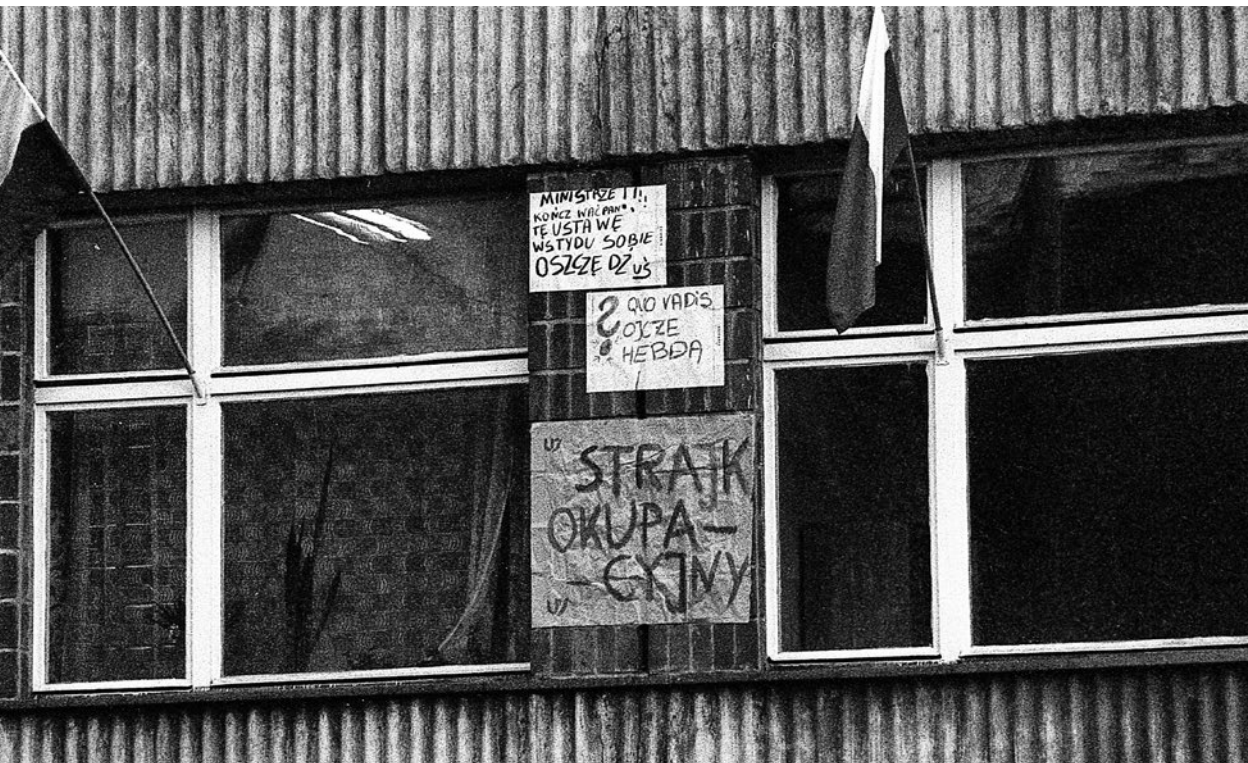 MINISTRZE !!!
KOŃCZ WAĆPAN
TĘ USTAWĘ
WSTYDU SOBIE
OSZCZĘDŹ
? QUO VADIS
OJCZE
HEBDA
STRAJK
OKUPA-
-CYJNY